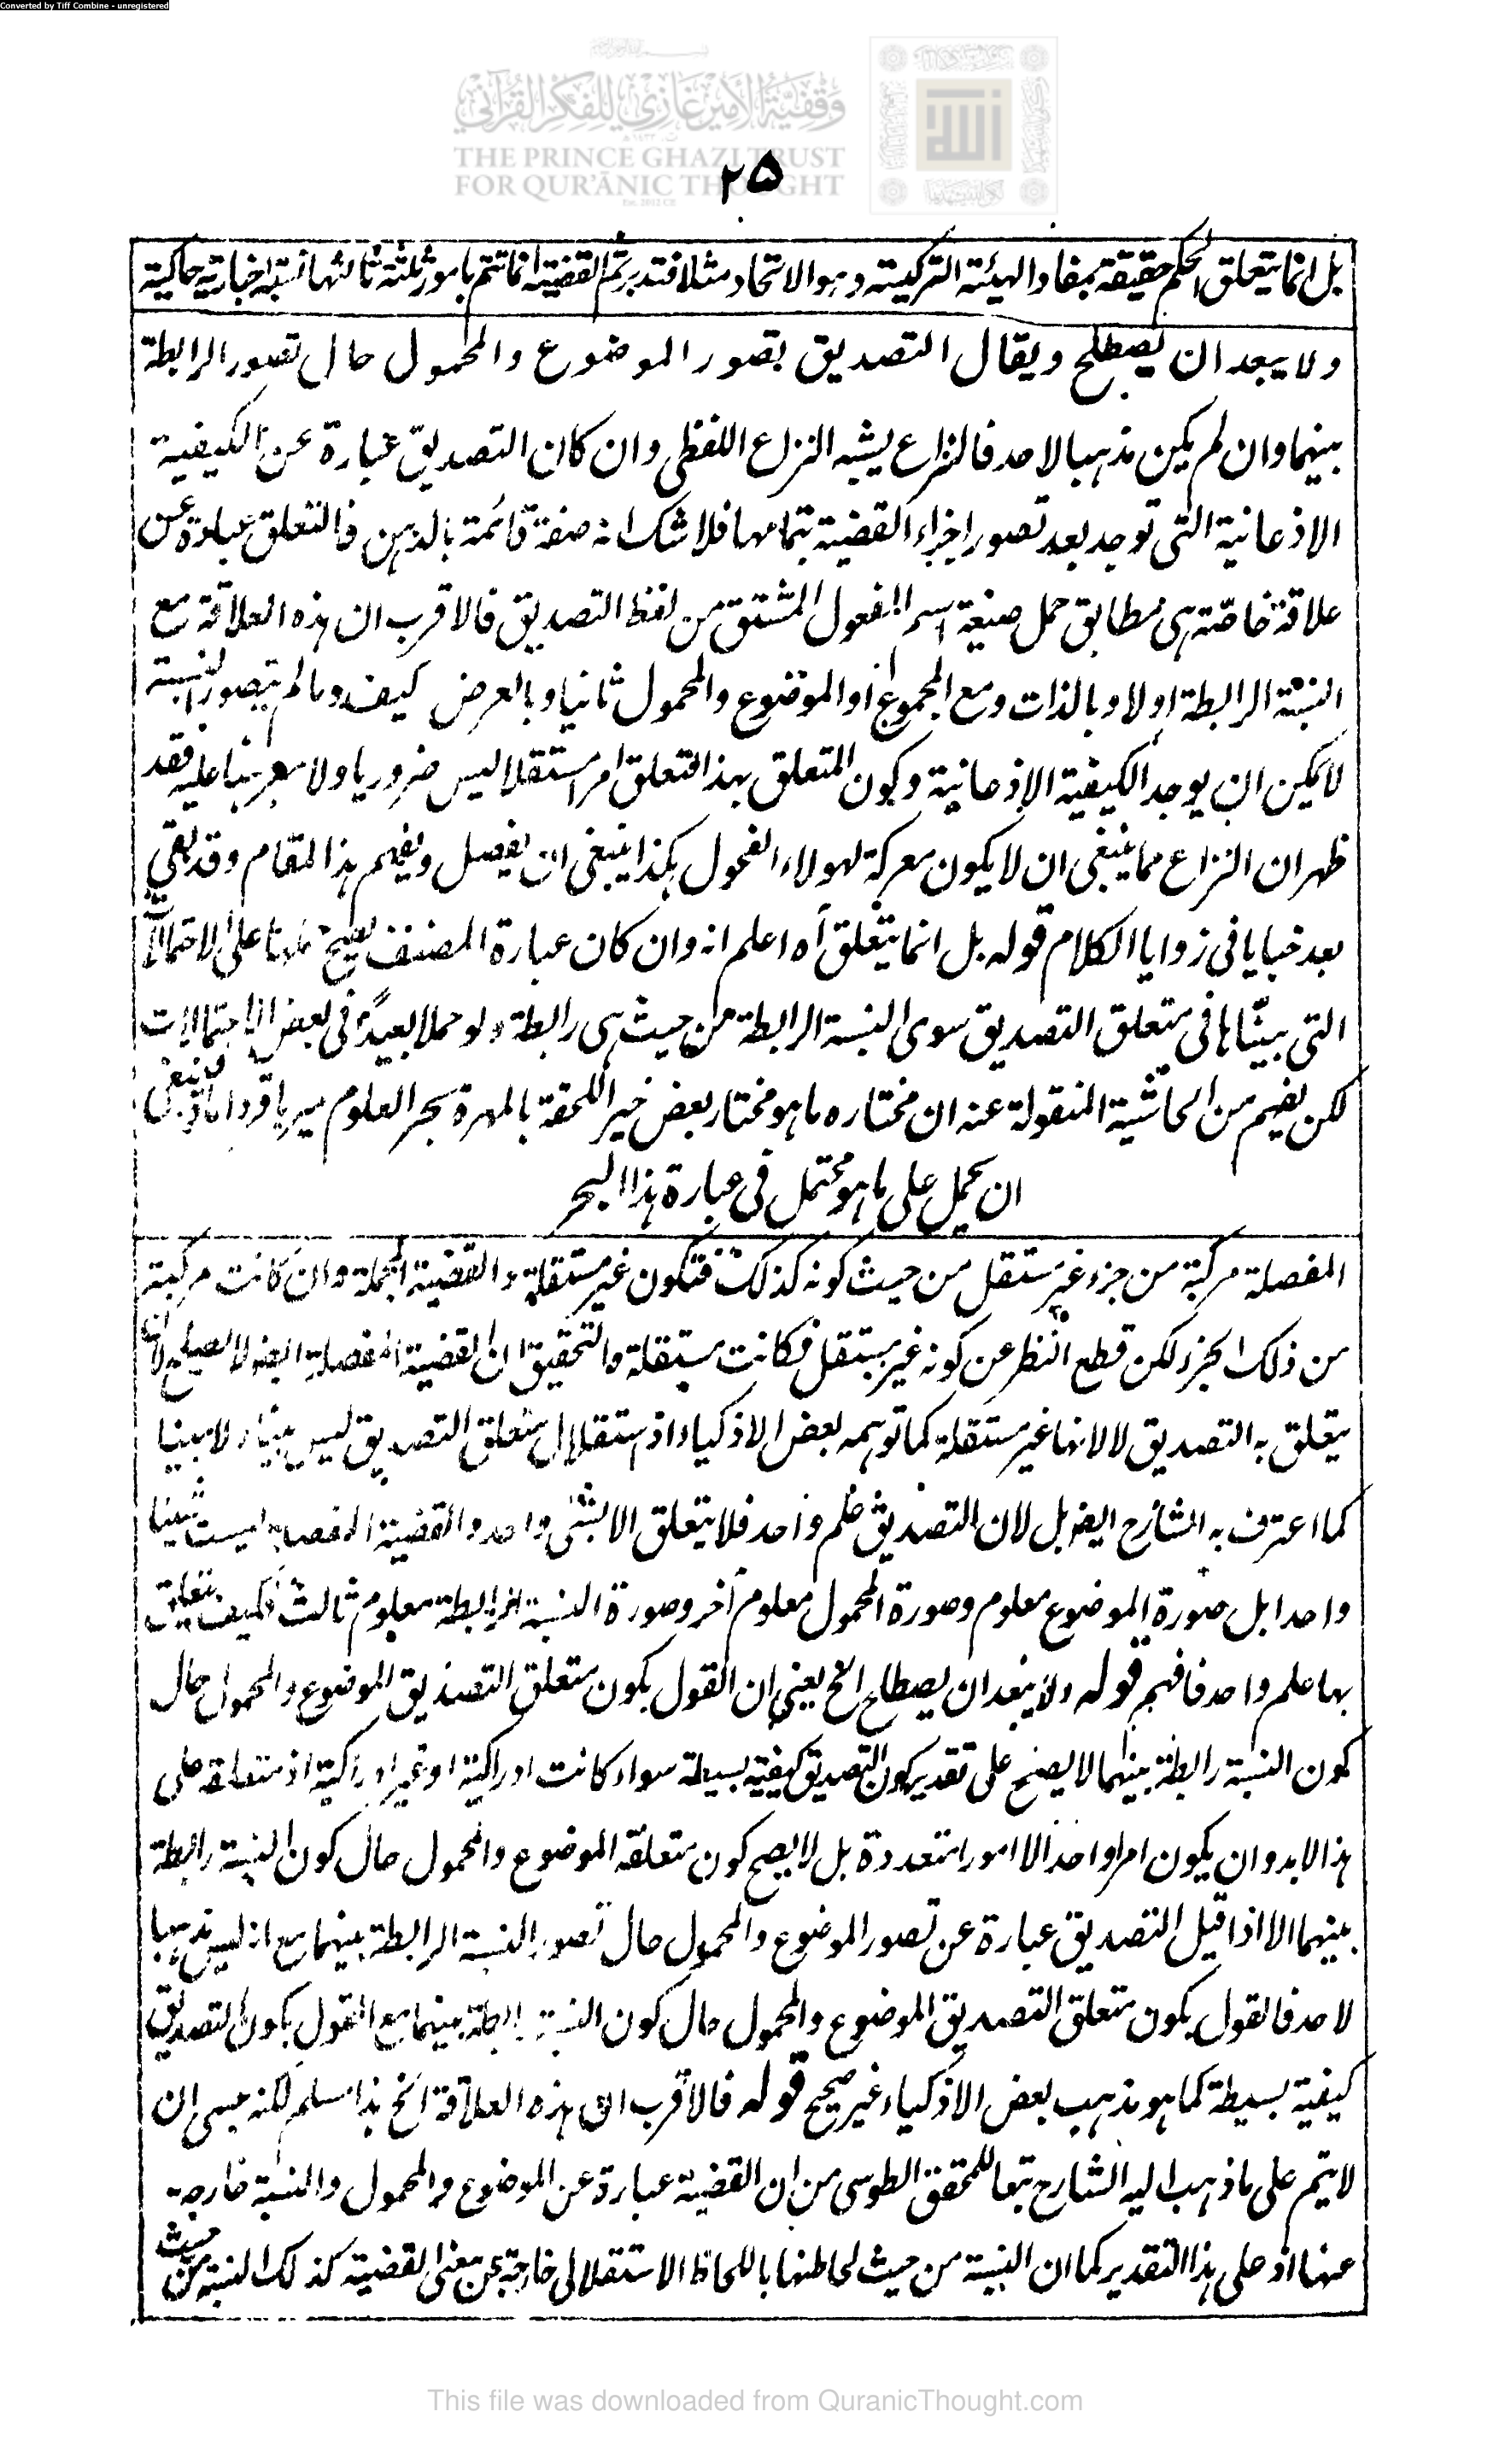 Converted by Tiff Combine - unregistered
وقفية الأمير غازي للفكر القرآني
THE PRINCE GHAZI TRUST
FOR QUR'ĀNIC THOUGHT
۲۵
بل انما يتعلق الحكم حقيقة بمفاد الهيئة التركيبية وهو الاتحاد مثلا فتدبر ثم القضية انما تتم بامور ثلثة ثالثها نسبة اخبارية حاكية
ولا يبعد ان يصطلح ويقال التصديق بتصور الموضوع والمحمول حال تصور الرابطة
بينهما وان لم يكن مذهبا لاحد فالنزاع يشبه النزاع اللفظي وان كان التصديق عبارة عن الكيفية
الاذعانية التي توجد بعد تصور اجزاء القضية بتمامها فلا شك انه صفة قائمة بالذهن فالتعلق عبارة عن
علاقة خاصة هي مطابق حمل صيغة اسم المفعول المشتق من لفظ التصديق فالاقرب ان هذه العلاقة مع
النسبة الرابطة اولا وبالذات ومع المجموع او الموضوع والمحمول ثانيا وبالعرض كيف وما لم يتصور النسبة
لا يمكن ان يوجد الكيفية الاذعانية وكون المتعلق بهذا التعلق امرا مستقلا ليس ضروريا ولا مبرهنا عليه فقد
ظهر ان النزاع مما ينبغي ان لا يكون معركة لهولاء الفحول هكذا ينبغي ان يفصل ويفهم هذا المقام وقد بقي
بعد خبايا في زوايا الكلام قوله بل انما يتعلق آه اعلم انه وان كان عبارة المصنف يصح حملها على الاحتمالات
التي بيناها في متعلق التصديق سوى النسبة الرابطة من حيث هي رابطة ولو حملا بعيدا في بعض الاحتمالات
لكن يفهم من الحاشية المنقولة عنه ان مختاره ما هو مختار بعض خير اللحقة بالمهرة بحر العلوم مير باقر داماد فينبغي
ان يحمل على ما هو محتمل في عبارة هذا البحر
المفصلة مركبة من جزء غير مستقل من حيث كونه كذلك فتكون غير مستقلة والقضية المجملة وان كانت مركبة
من ذلك الجزء لكن قطع النظر عن كونه غير مستقل فكانت مستقلة والتحقيق ان القضية المفصلة ايضا لا يصلح لان
يتعلق به التصديق لا لانها غير مستقلة كما توهمه بعض الاذكياء اذ استقلال متعلق التصديق ليس بينا ولا مبينا
كما اعترف به الشارح ايضا بل لان التصديق علم واحد فلا يتعلق الا بشئ واحد والقضية المفصلة ليست شيئا
واحدا بل صورة الموضوع معلوم وصورة المحمول معلوم آخر وصورة النسبة الرابطة معلوم ثالث فكيف يتعلق
بها علم واحد فافهم قوله ولا يبعد ان يصطلح الخ يعني ان القول بكون متعلق التصديق الموضوع والمحمول حال
كون النسبة رابطة بينهما لا يصح على تقدير كون التصديق كيفية بسيطة سواء كانت ادراكية او غير ادراكية اذ متعلقه على
هذا لابد وان يكون امرا واحدا لا امورا متعددة بل لا يصح كون متعلقه الموضوع والمحمول حال كون النسبة رابطة
بينهما الا اذا قيل التصديق عبارة عن تصور الموضوع والمحمول حال تصور النسبة الرابطة بينهما مع انه ليس مذهبا
لاحد فالقول بكون متعلق التصديق الموضوع والمحمول حال كون النسبة رابطة بينهما مع القول بكون التصديق
كيفية بسيطة كما هو مذهب بعض الاذكياء غير صحيح قوله فالاقرب ان هذه العلاقة الخ هذا مسلم لكنه عسى ان
لا يتم على ما ذهب اليه الشارح تبعا للمحقق الطوسي من ان القضية عبارة عن الموضوع والمحمول والنسبة خارجة
عنها اذ على هذا التقدير كما ان النسبة من حيث لحاظها باللحاظ الاستقلالي خارجة عن معنى القضية كذلك النسبة من حيث
This file was downloaded from QuranicThought.com